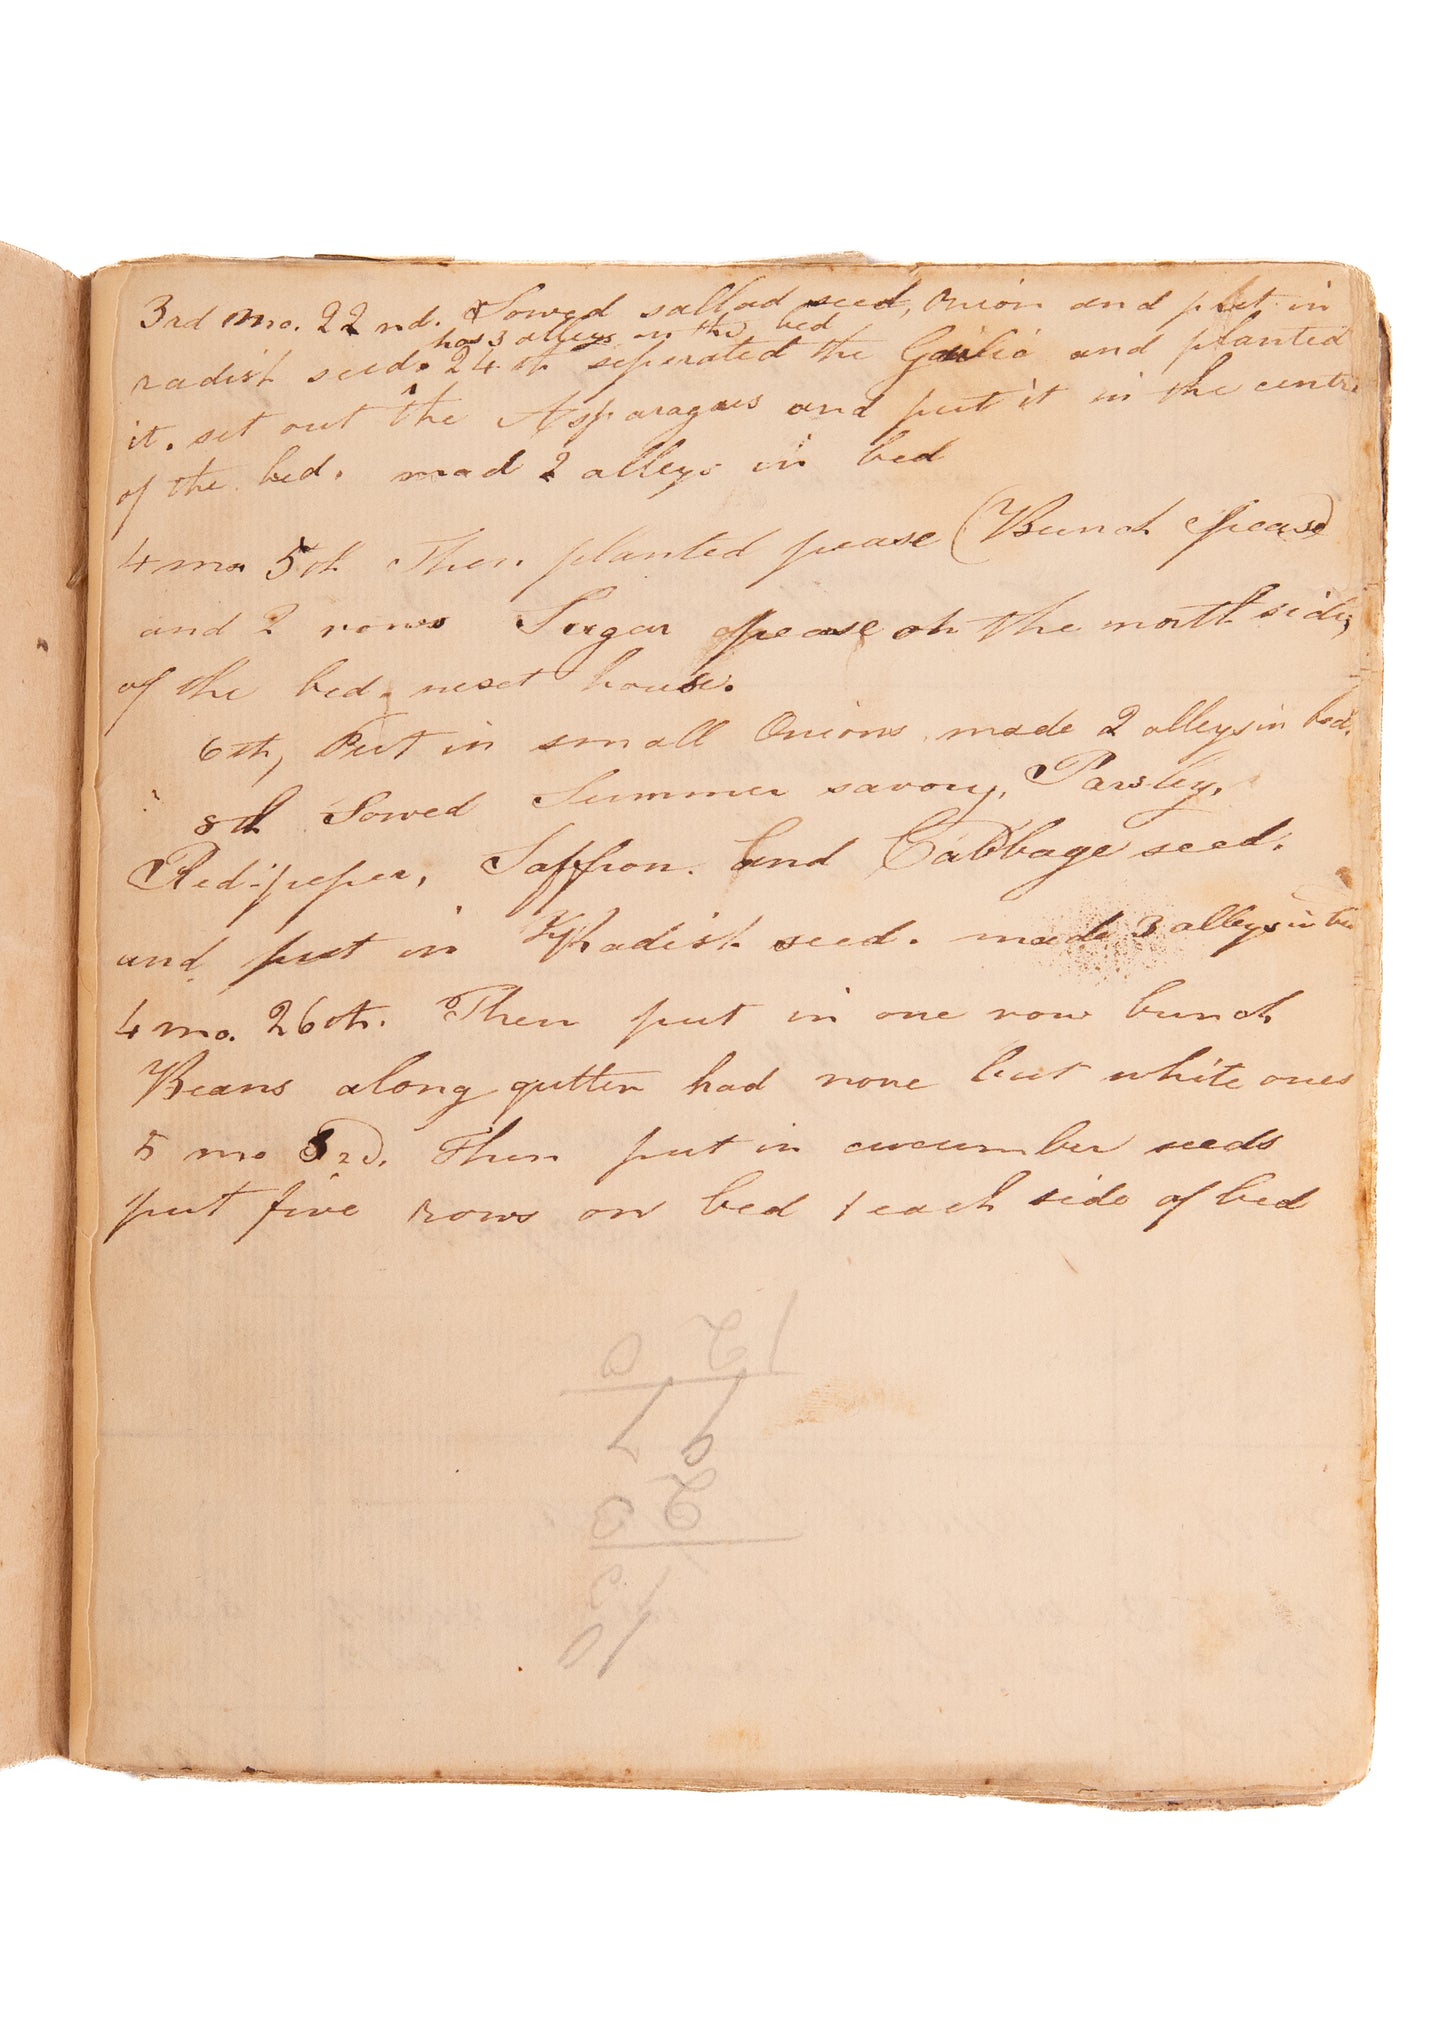 3rd mo. 22nd. Sowed sallad seed, Onion and put in
has 3 alleys in the bed
radish seed. 24th seperated the Garlic and planted
it. set out the Asparagus and put it in the centre
of the bed. mad 2 alleys in bed
4 mo 5th Then planted pease (Bunch pease)
and 2 rows Sugar pease on the north side,
of the bed next house.
6th, Put in small Onions made 2 alleys in bed.
8th Sowed Summer savory, Parsley,
Red-peper, Saffron. and Cabbage seed.
and put in Rhadish seed. made 3 alleys in
4 mo. 26th. Then put in one row bunch
Beans along gutter had none but white ones
5 mo 3rd. Then put in cucumber seeds
put five rows on bed 1 each side of bed